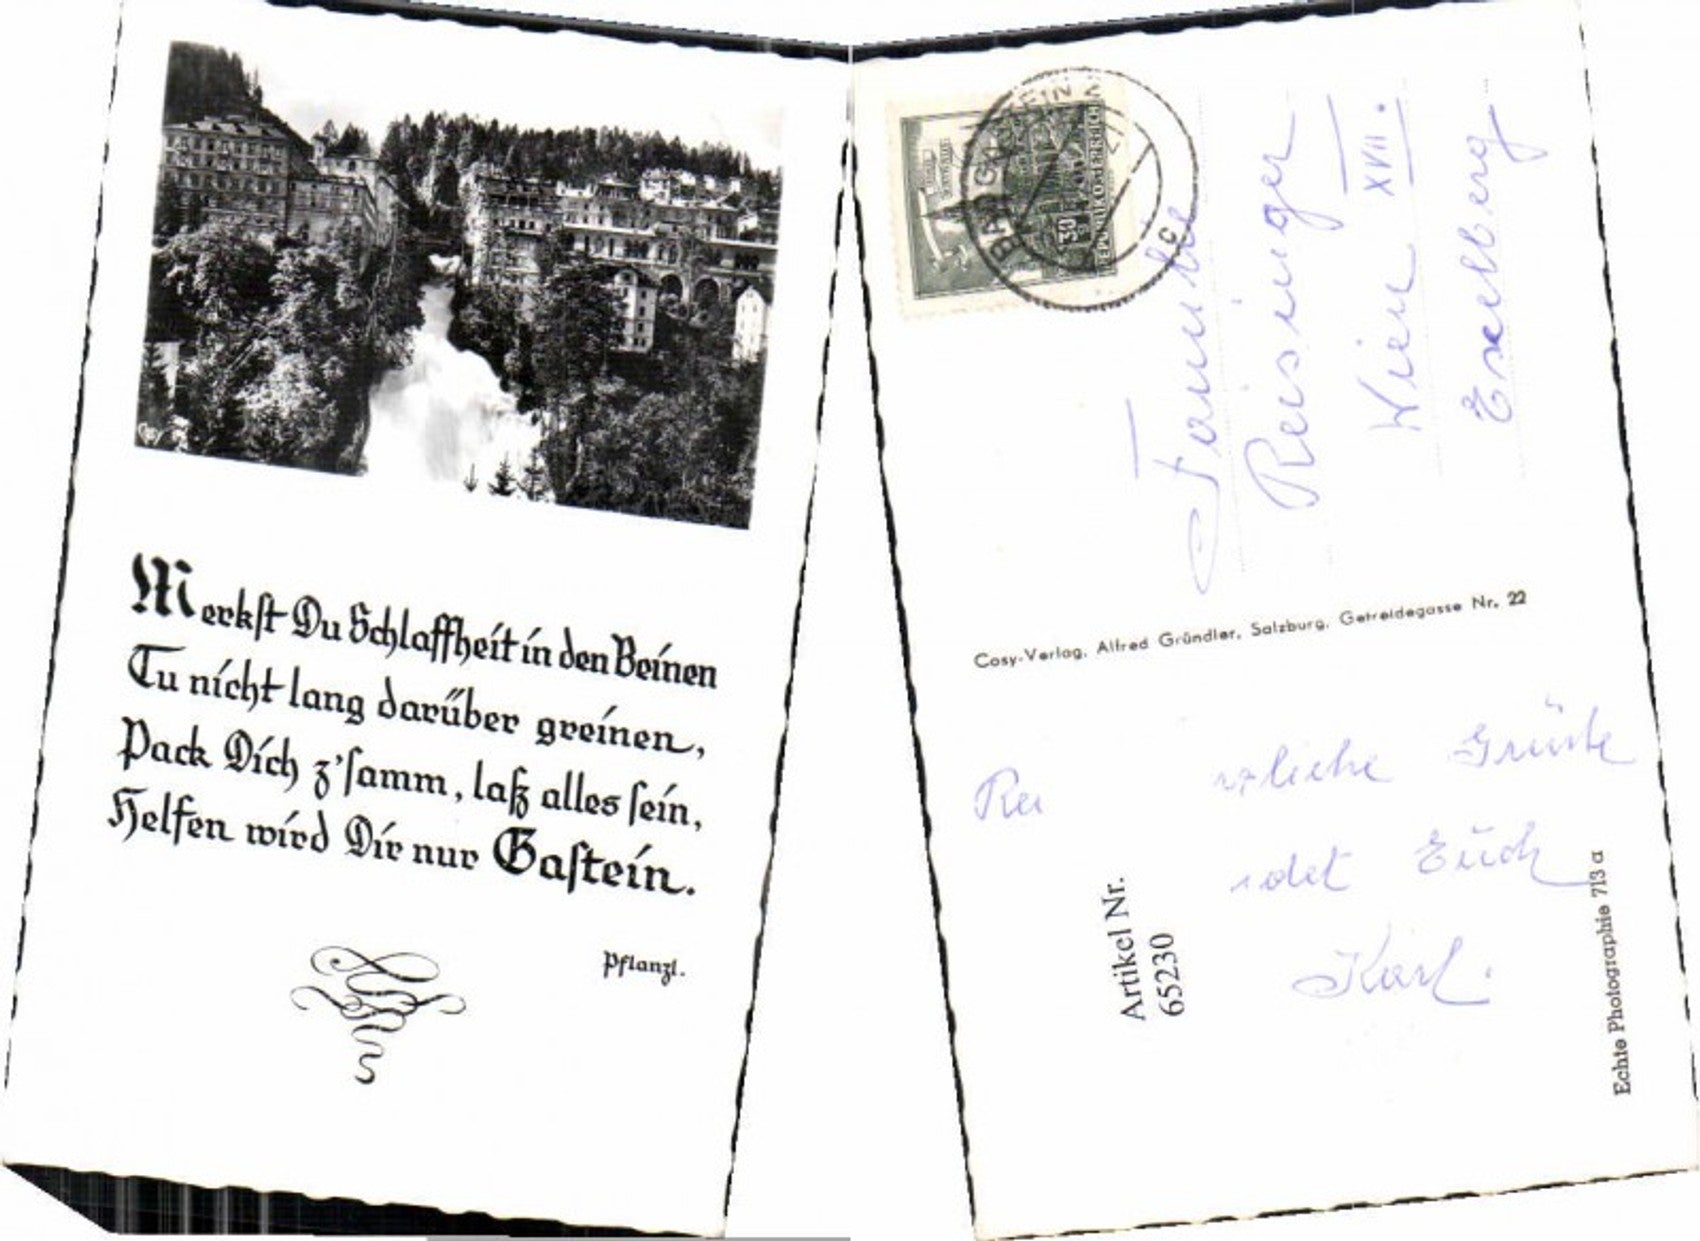 Merkst Du Schlaffheit in den Beinen
Tu nicht lang darüber greinen,
Pack Dich z'samm, laß alles sein,
Helfen wird Dir nur Gastein.
Pflanzl.
Cosy
BADGASTEIN
C
S 1.30
REPUBLIK ÖSTERREICH
Familie
Reisinger
Wien XVII.
Exelberg
Cosy-Verlag, Alfred Gründler, Salzburg, Getreidegasse Nr. 22
rzliche Grüße
ndet Euch
Karl.
Artikel Nr.
65230
Echte Photographie 713 a